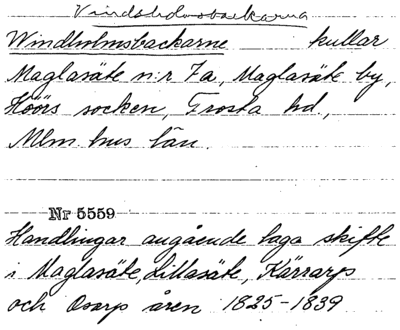 Vindsholmsbackarna
Windholmsbackarne kullar
Maglasäte n:r 7a, Maglasäte by,
Höörs socken, Frosta hd,
Mlm. hus län.
Nr 5559
Handlingar angående laga skifte
i Maglasäte, Lillasäte, Kärrarp
och Osarp åren 1825-1839